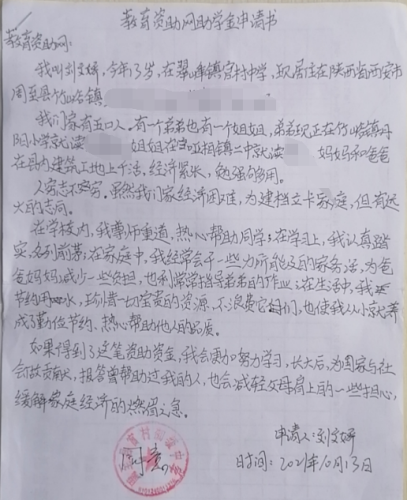 教育资助网助学金申请书
教育资助网:
我叫刘文妍,今年13岁,在翠峰镇官村中学,现居住在陕西省西安市
周至县竹峪镇
我们家有五口人,有一个弟弟也有一个姐姐,弟弟现正在竹峪镇丹
阳小学就读 姐姐在哑柏镇二中就读 妈妈和爸爸
在县内建筑工地上干活,经济紧张,勉强够用。
人穷志不穷。虽然我们家经济困难,为建档立卡家庭,但有远
大的志向。
在学校内,我尊师重道,热心帮助同学;在学习上,我认真踏
实,名列前茅;在家庭中,我经常会干一些力所能及的家务活,为爸
爸妈妈减少一些负担,也利常常指导弟弟的作业;在生活中,我
节约用水,珍惜一切宝贵的资源,不浪费它们,也使我从小就养
成了勤俭节约、热心帮助他人的品质。
如果得到了这笔资助资金,我会更加努力学习,长大后,为国家与社
会做贡献,报答曾帮助过我的人,也会减轻父母肩上的一些担心,
缓解家庭经济的燃眉之急。
申请人:刘文妍
时间:2021年10月13日